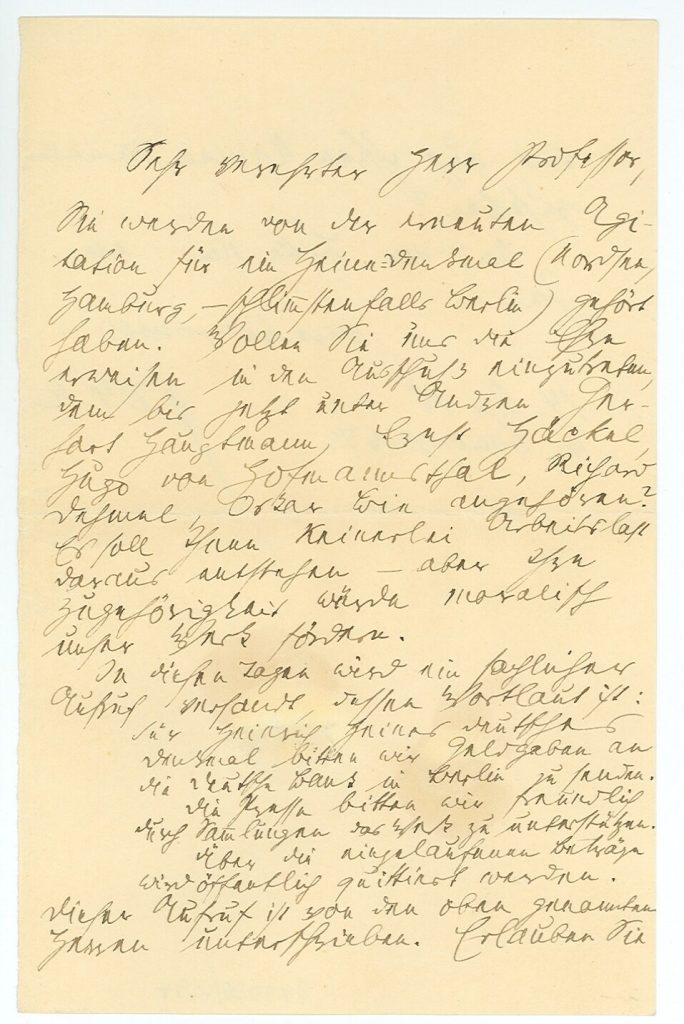 Sehr verehrter Herr Professor,
Sie werden von der erneuten Agi-
tation für ein Heine=denkmal (Nordsee,
Hamburg, – schlimmstenfalls Berlin) gehört
haben. Wollen Sie uns die Ehre
erweisen in den Ausschuß einzutreten,
dem bis jetzt unter Andren Ger-
hart Hauptmann, Ernst Häckel,
Hugo von Hofmannsthal, Richard
Dehmel, Oskar Bie angehören?
Es soll Ihnen keinerlei Arbeitslast
daraus entstehen – aber Ihre
Zugehörigkeit würde moralisch
unser Werk fördern.
In diesen Tagen wird ein sachlicher
Aufruf versandt, dessen Wortlaut ist:
Für Heinrich Heines deutsches
Denkmal bitten wir Geldgaben an
die deutsche Bank in Berlin zu senden.
Die Presse bitten wir freundlich
durch Sammlungen das Werk zu unterstützen.
Über die eingelaufenen Beträge
wird öffentlich quittiert werden.
Dieser Aufruf ist von den oben genannten
Herren unterschrieben. Erlauben Sie